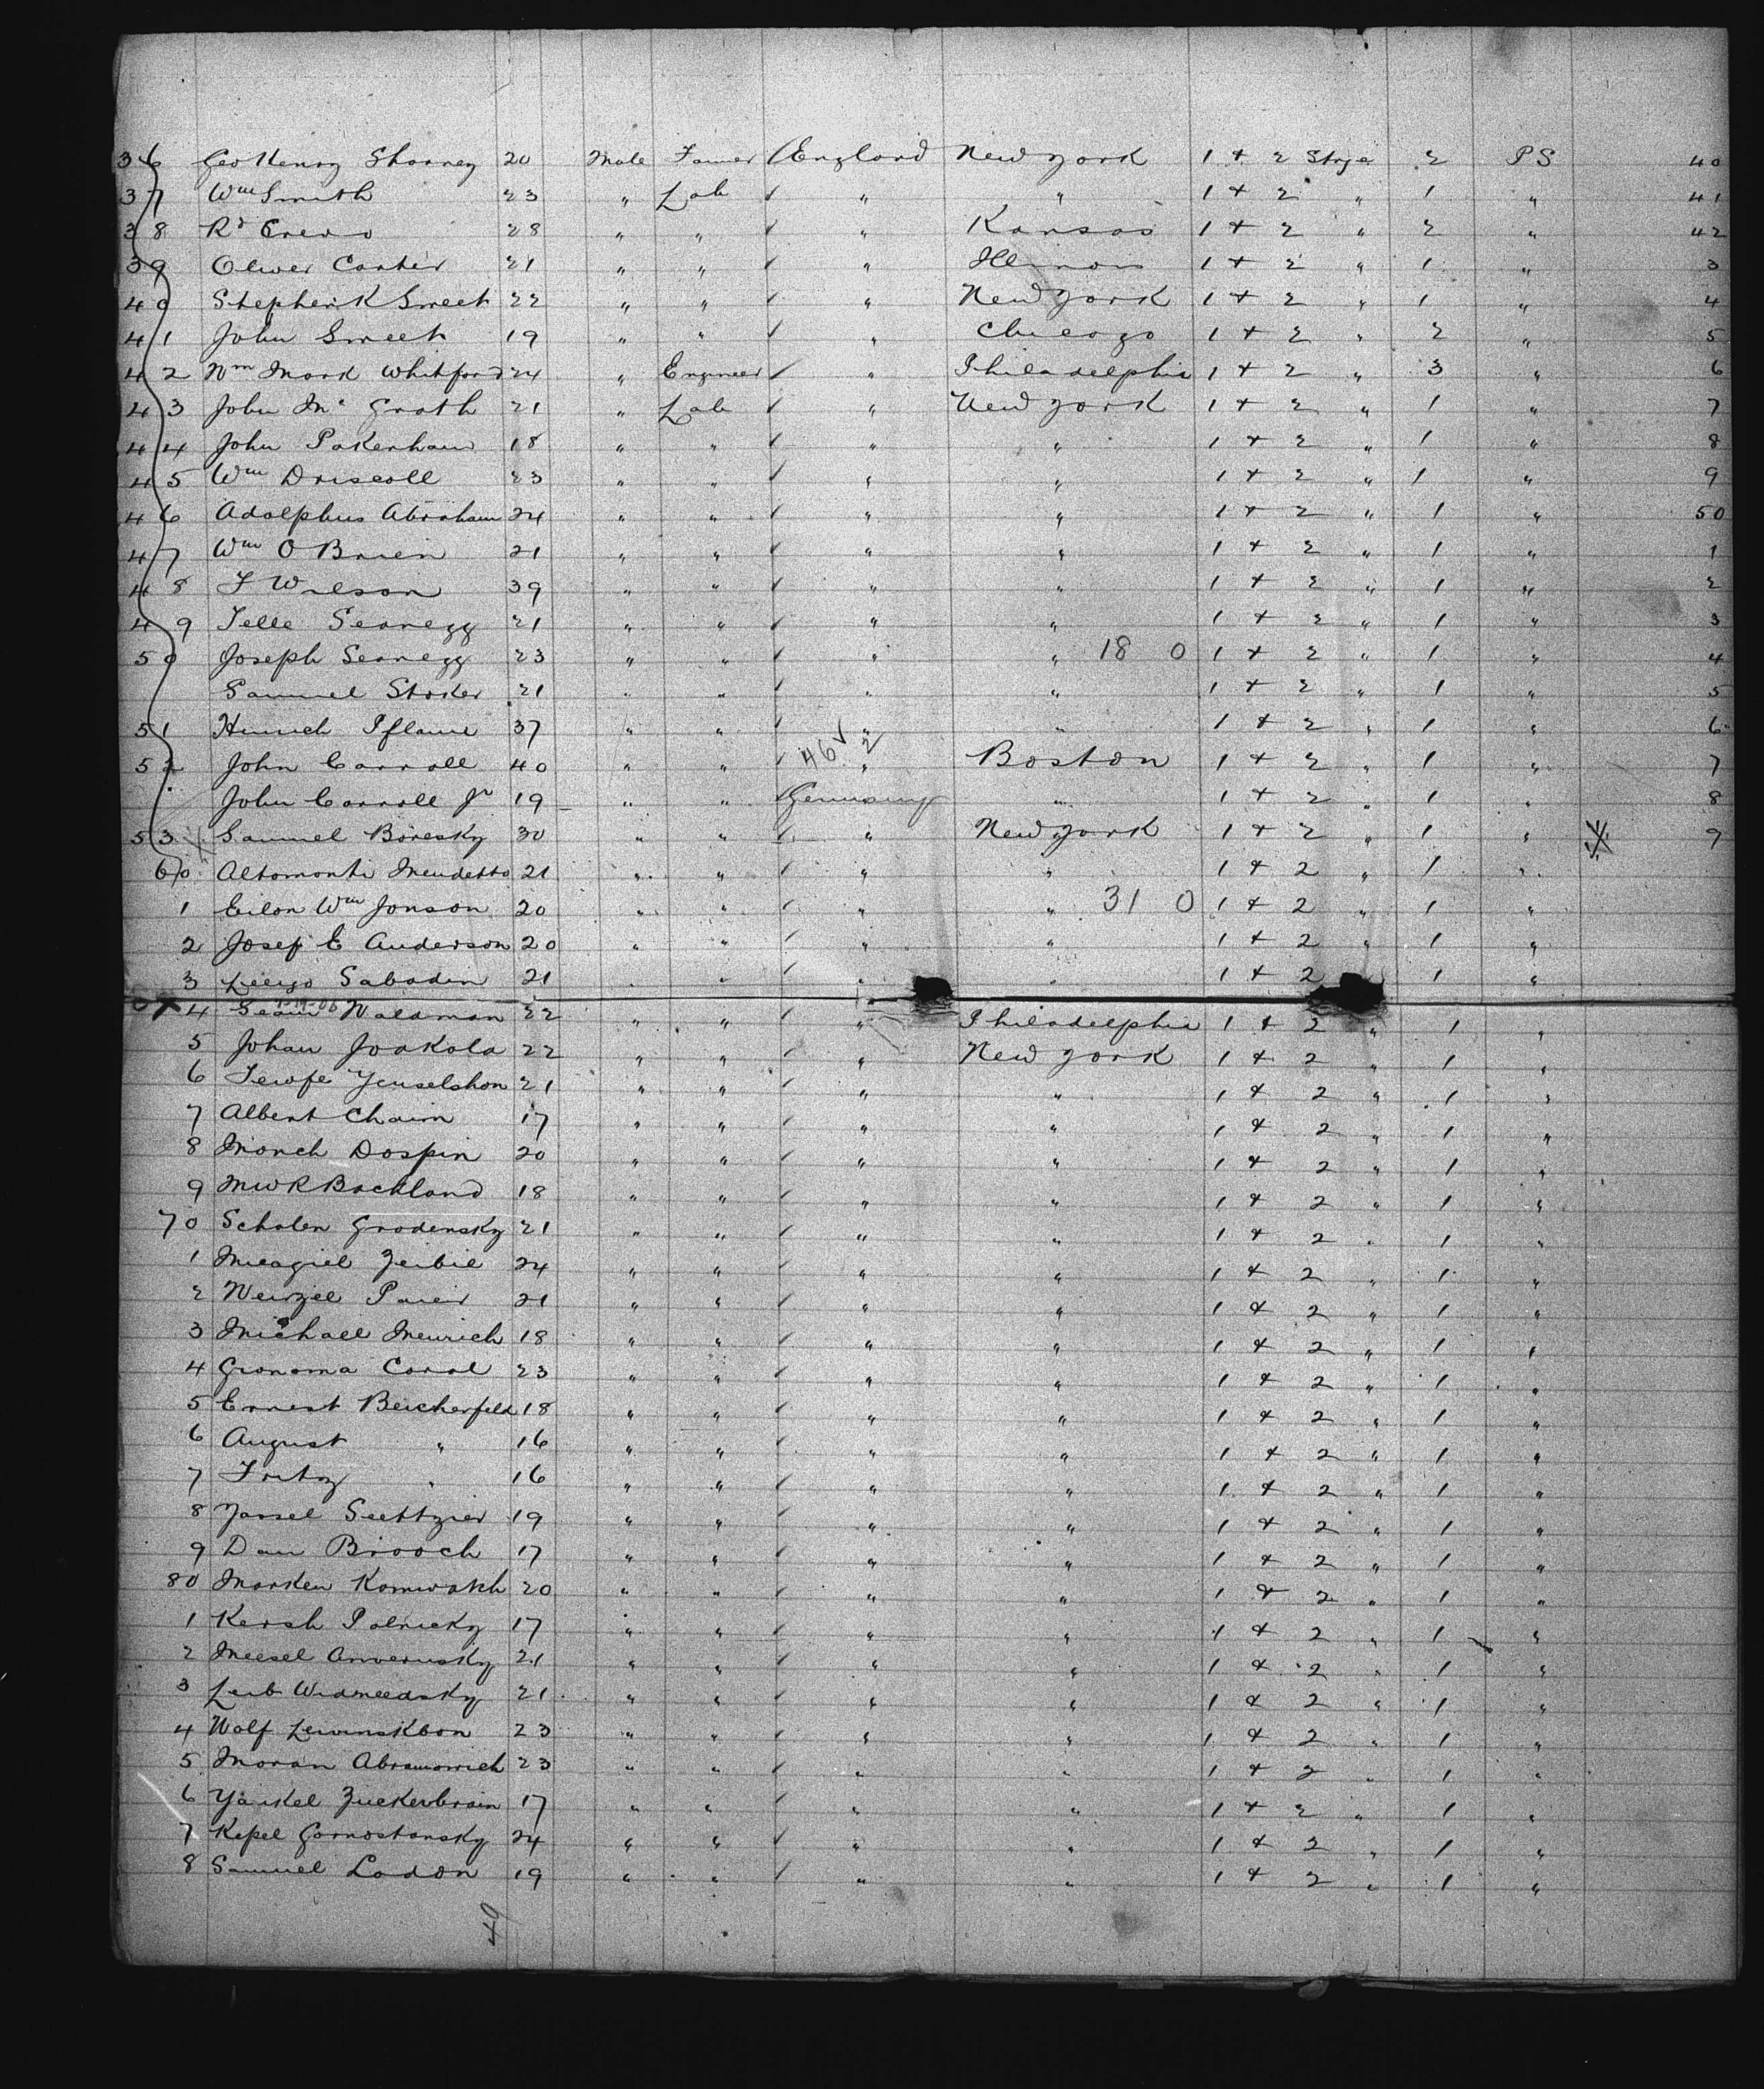 36 Geo Henry Shorney 20 Male Farmer England New York 1 + 2 Stge 2 PS 40
37 Wm Smith 23 " Lab ✓ " " 1 + 2 " 1 " 41
38 Rd 28 " " ✓ " Kansas 1 + 2 " 2 " 42
39 Oliver Carter 21 " " ✓ " Illinois 1 + 2 " 1 " 3
40 Stephen K Sweet 22 " " ✓ " New York 1 + 2 " 1 " 4
41 John Sweet 19 " " ✓ " Chicago 1 + 2 " 2 " 5
42 Wm Mark Whitford 24 " Engineer ✓ " Philadelphia 1 + 2 " 3 " 6
43 John Mc Grath 21 " Lab ✓ " New York 1 + 2 " 1 " 7
44 John Pakenham 18 " " ✓ " " 1 + 2 " 1 " 8
45 Wm Driscoll 23 " " ✓ " " 1 + 2 " 1 " 9
46 Adolphus Abraham 24 " " ✓ " " 1 + 2 " 1 " 50
47 Wm O Brien 21 " " ✓ " " 1 + 2 " 1 " 1
48 F Wilson 39 " " ✓ " " 1 + 2 " 1 " 2
49 21 " " ✓ " " 1 + 2 " 1 " 3
50 Joseph 23 " " ✓ " " 18 0 1 + 2 " 1 " 4
Samuel Stoker 21 " " ✓ " " 1 + 2 " 1 " 5
51 Pflaum 37 " " ✓ " " 1 + 2 " 1 " 6
52 John Carroll 40 " " ✓ 46 ✓ 2 " Boston 1 + 2 " 1 " 7
John Carroll Jr 19 " " Germany " 1 + 2 " 1 " 8
53 Samuel Boresky 30 " " ✓ " New York 1 + 2 " 1 " 9
60 Altomonti Meudetto 21 " " ✓ " " 1 + 2 " 1 "
1 Eilon Wm Jonson 20 " " ✓ " " 31 0 1 + 2 " 1 "
2 Josef E Anderson 20 " " ✓ " " 1 + 2 " 1 "
3 Sabodin 21 " " ✓ " " 1 + 2 " 1 "
4 Waldman 22 " " ✓ " Philadelphia 1 + 2 " 1 "
5 Johan Joakola 22 " " ✓ " New York 1 + 2 " 1 "
6 21 " " ✓ " " 1 + 2 " 1 "
7 Albert Chaim 17 " " ✓ " " 1 + 2 " 1 "
8 Morich Dospin 20 " " ✓ " " 1 + 2 " 1 "
9 MWR Backland 18 " " ✓ " " 1 + 2 " 1 "
70 Scholen Grodensky 21 " " ✓ " " 1 + 2 " 1 "
1 Meagiel Zeibie 24 " " ✓ " " 1 + 2 " 1 "
2 21 " " ✓ " " 1 + 2 " 1 "
3 Michael Meurich 18 " " ✓ " " 1 + 2 " 1 "
4 Gronoma Coral 23 " " ✓ " " 1 + 2 " 1 "
5 Ernest Beicherfeld 18 " " ✓ " " 1 + 2 " 1 "
6 August " 16 " " ✓ " " 1 + 2 " 1 "
7 Fritz " 16 " " ✓ " " 1 + 2 " 1 "
8 19 " " ✓ " " 1 + 2 " 1 "
9 Dan Brooch 17 " " ✓ " " 1 + 2 " 1 "
80 20 " " ✓ " " 1 + 2 " 1 "
1 Kersh Polnicky 17 " " ✓ " " 1 + 2 " 1 "
2 21 " " ✓ " " 1 + 2 " 1 "
3 Leib 21 " " ✓ " " 1 + 2 " 1 "
4 Wolf Lewinskbon 23 " " ✓ " " 1 + 2 " 1 "
5 Moran Abramowich 23 " " ✓ " " 1 + 2 " 1 "
6 Yankel Zuckerbrain 17 " " ✓ " " 1 + 2 " 1 "
7 Kepel Gornostansky 24 " " ✓ " " 1 + 2 " 1 "
8 Samuel Lodon 19 " " ✓ " " 1 + 2 " 1 "
49